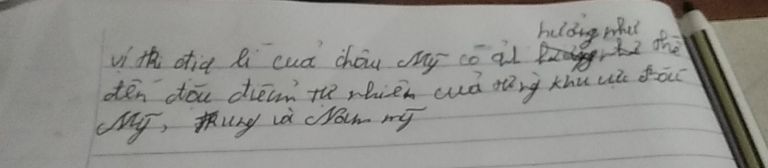 hưởng như
vị thí địa lí của châu Mỹ có ảl thế
đến đâu điểm tự nhiên của từng khu vực Bắc
Mỹ, Trung và Nam mỹ